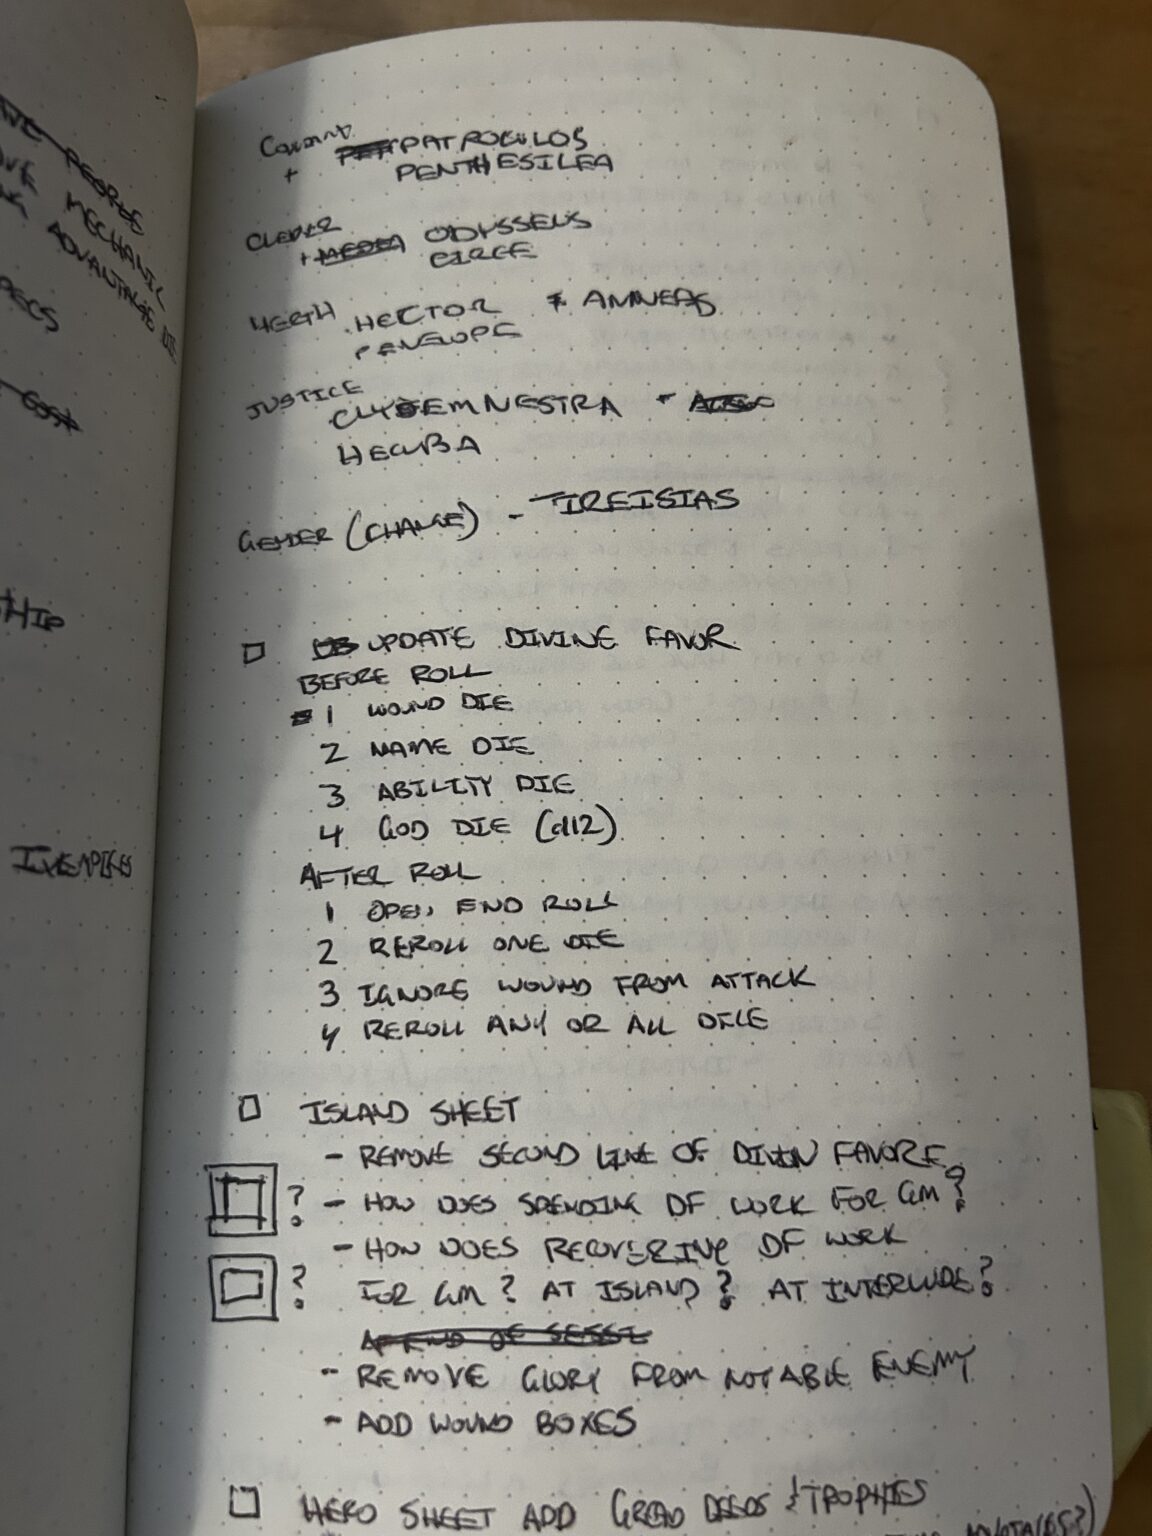 WE PEOPLE
MECHANIC
ADVANTAGE DIE
SPECS
COST
SHIP
+ PATROCULOS
PENTHESILEA
CLEVER
+ MEDEA ODYSSEUS
CIRCE
HERTH HECTOR + AMNEAS
PENELOPE
JUSTICE
CLYTEMNESTRA +
HECUBA
GENDER (CHANGE) - TIREISIAS
□ UPDATE DIVINE FAVOR
BEFORE ROLL
1 WOUND DIE
2 NAME DIE
3 ABILITY DIE
4 GOD DIE (d12)
AFTER ROLL
1 OPEN END ROLL
2 REROLL ONE DIE
3 IGNORE WOUND FROM ATTACK
4 REROLL ANY OR ALL DICE
□ ISLAND SHEET
- REMOVE SECOND LINE OF DIVIN FAVORE
? - HOW DOES SPENDING DF WORK FOR GM?
- HOW DOES RECOVERING DF WORK
? FOR GM? AT ISLAND? AT INTERLUDE?
AT END OF SESSI
- REMOVE GLORY FROM NOTABLE ENEMY
- ADD WOUND BOXES
□ HERO SHEET ADD GREAD DEEDS & TROPHIES